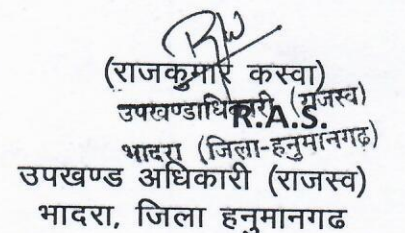 (राजकुमार कस्वा)
उपखण्डाधिकारी (राजस्व)
R.A.S.
भादरा (जिला-हनुमानगढ़)
उपखण्ड अधिकारी (राजस्व)
भादरा, जिला हनुमानगढ